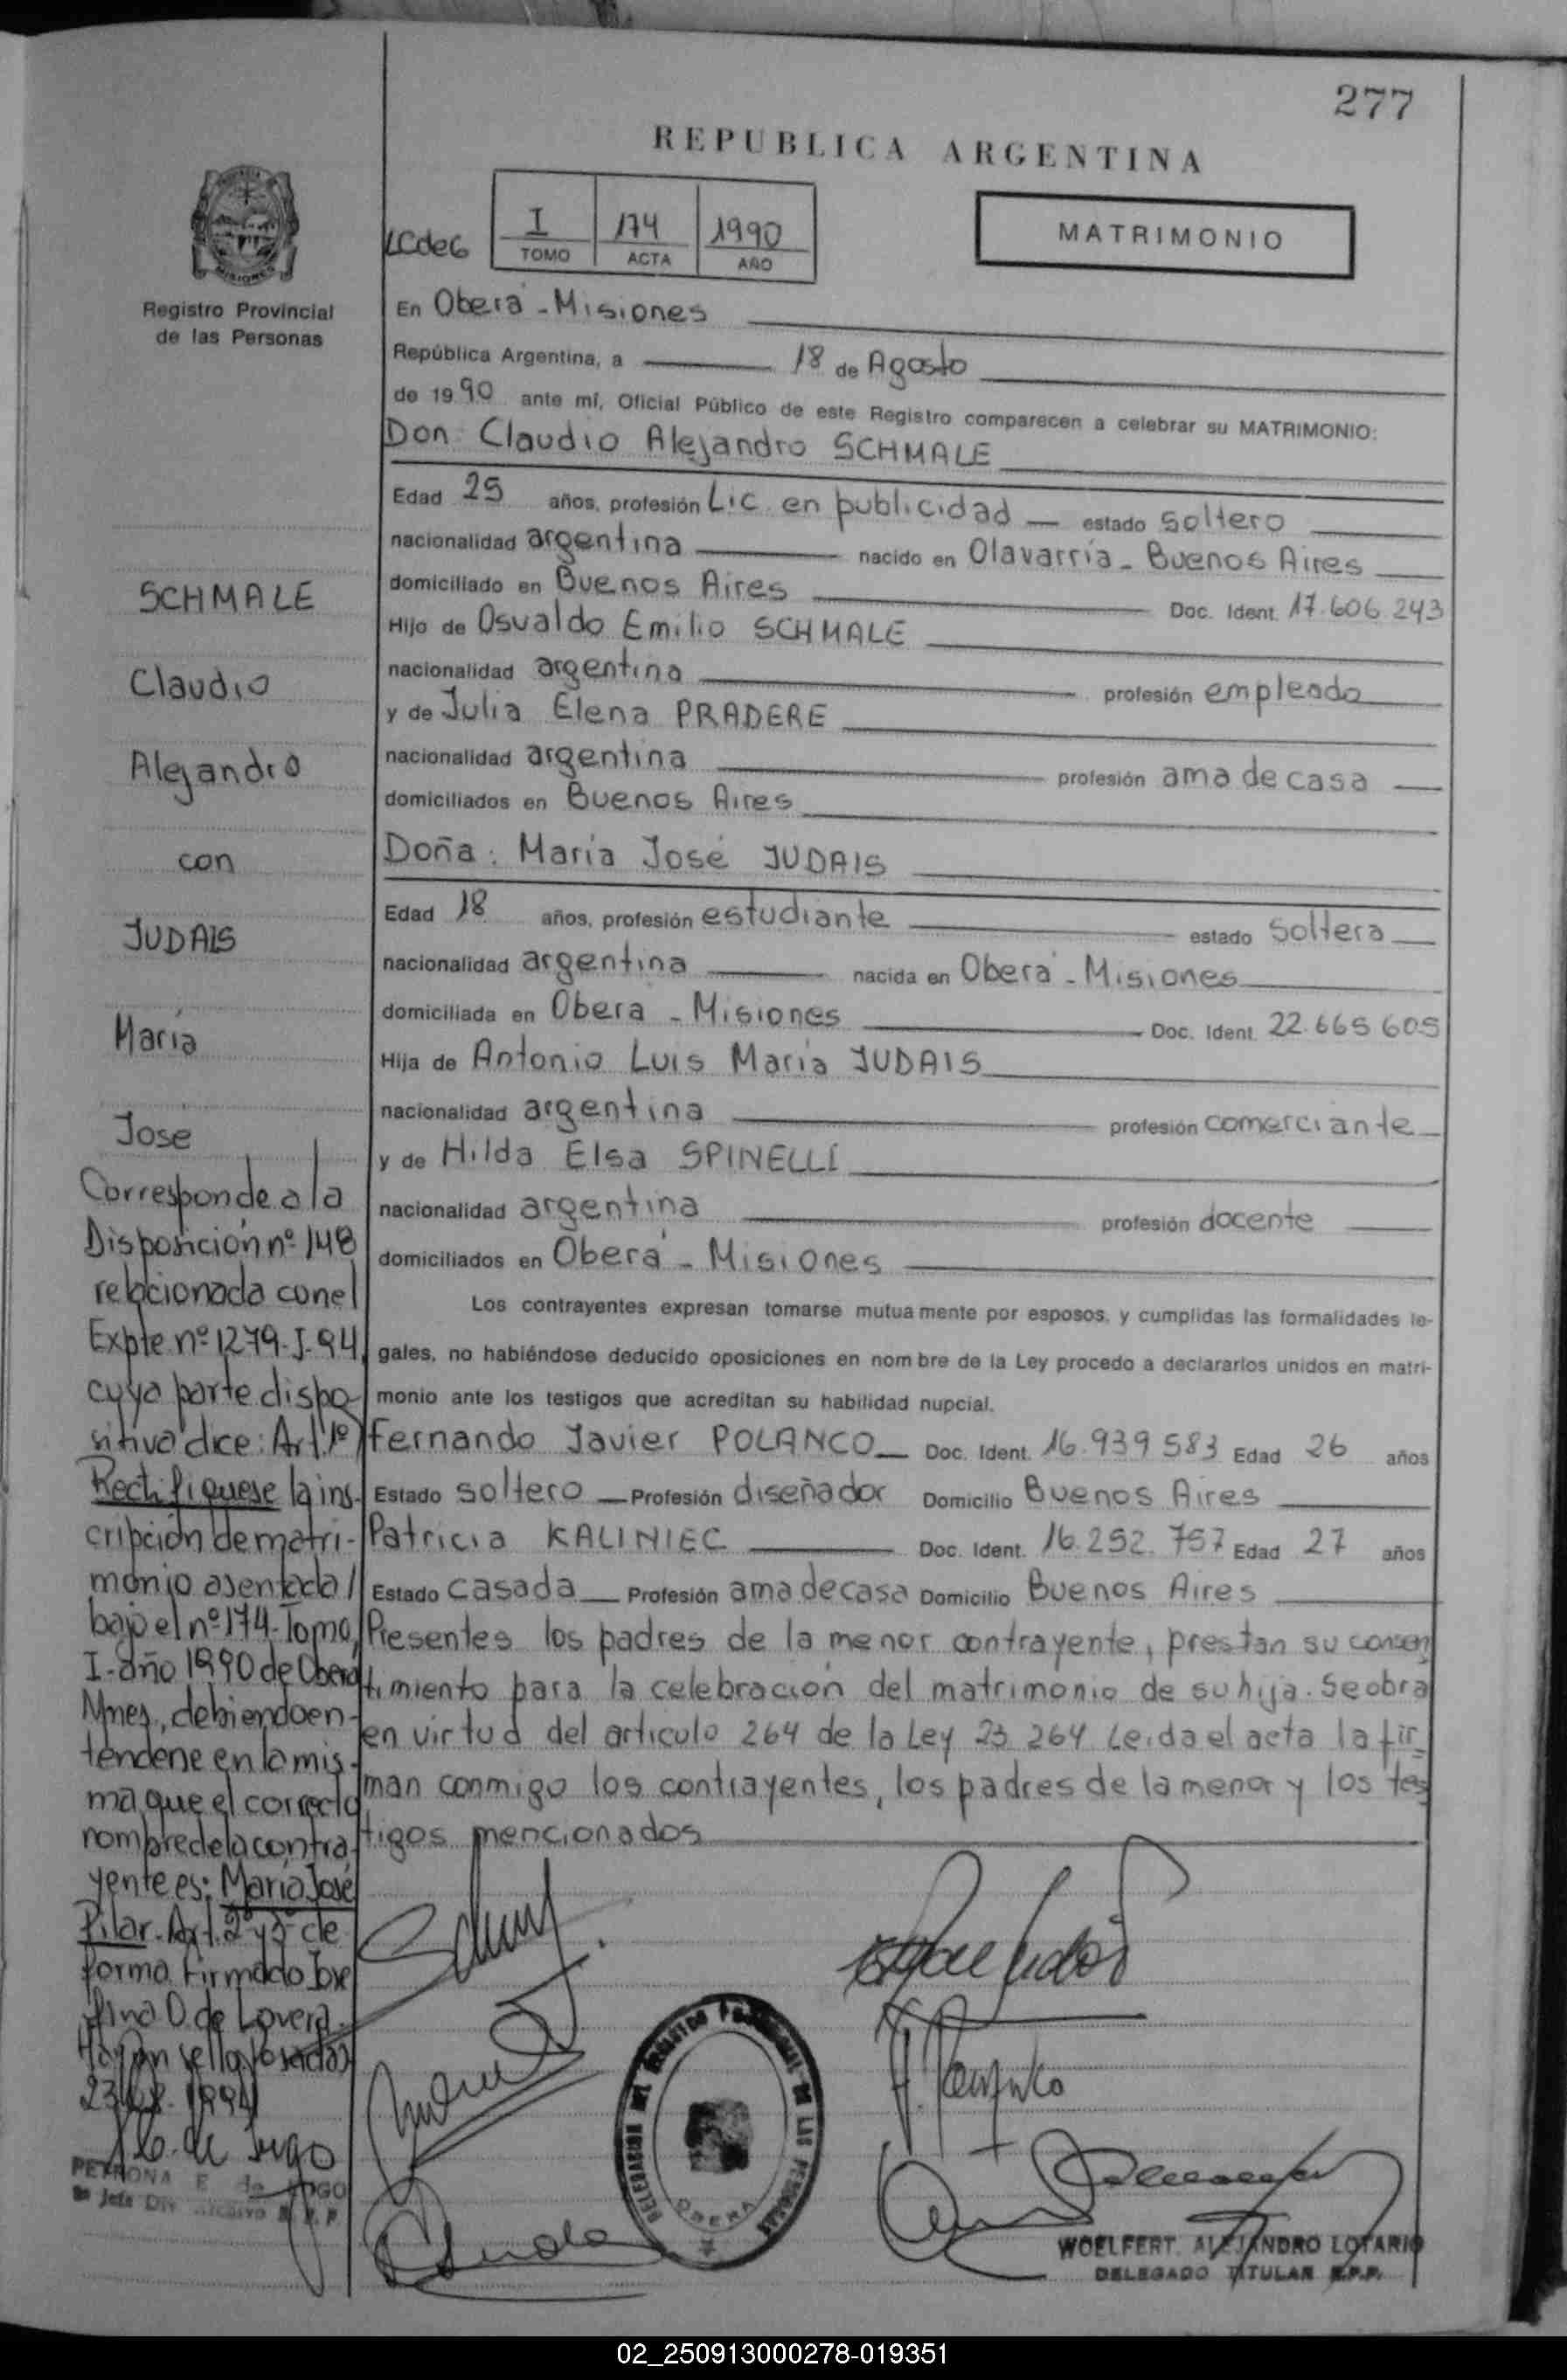 277
REPUBLICA ARGENTINA
LCdeG
I 174 1990
TOMO ACTA AÑO
MATRIMONIO
MISIONES
Registro Provincial
de las Personas
En Oberá - Misiones
República Argentina, a 18 de Agosto
de 1990 ante mí, Oficial Público de este Registro comparecen a celebrar su MATRIMONIO:
Don: Claudio Alejandro SCHMALE
Edad 25 años, profesión Lic. en publicidad estado soltero
nacionalidad argentina nacido en Olavarría - Buenos Aires
domiciliado en Buenos Aires Doc. Ident. 17.606.243
Hijo de Osvaldo Emilio SCHMALE
nacionalidad argentina profesión empleado
y de Julia Elena PRADERE
nacionalidad argentina profesión ama de casa
domiciliados en Buenos Aires
Doña: María José JUDAIS
Edad 18 años, profesión estudiante estado soltera
nacionalidad argentina nacida en Oberá - Misiones
domiciliada en Oberá - Misiones Doc. Ident. 22.665.605
Hija de Antonio Luis María JUDAIS
nacionalidad argentina profesión comerciante
y de Hilda Elsa SPINELLI
nacionalidad argentina profesión docente
domiciliados en Oberá - Misiones
Los contrayentes expresan tomarse mutuamente por esposos, y cumplidas las formalidades le-
gales, no habiéndose deducido oposiciones en nombre de la Ley procedo a declararlos unidos en matri-
monio ante los testigos que acreditan su habilidad nupcial.
Fernando Javier POLANCO Doc. Ident. 16.939.583 Edad 26 años
Estado soltero Profesión diseñador Domicilio Buenos Aires
Patricia KALINIEC Doc. Ident. 16.252.757 Edad 27 años
Estado casada Profesión ama de casa Domicilio Buenos Aires
Presentes los padres de la menor contrayente, prestan su consen
timiento para la celebración del matrimonio de su hija. Se obra
en virtud del artículo 264 de la Ley 23.264 Leida el acta la fir=
man conmigo los contrayentes, los padres de la menor y los tes
tigos mencionados
SCHMALE
Claudio
Alejandro
con
JUDAIS
María
José
Corresponde a la
Disposición nº 148
relacionada con el
Expte. nº 1279-J-94,
cuya parte dispo-
sitiva dice: Art. 1º)
Rectifiquese la ins-
cripción de matri-
monio asentada /
bajo el nº 174-Tomo
I-año 1990 de Oberá
Mnes, debiendo en-
tenderse en la mis-
ma que el correcto
nombre de la contra-
yente es: María José
Pilar. Art. 2º y 3º de
forma. Firmado Jose
fina O. de Lovera.
Hay un sello Posadas
1994
PETRONA E de LUGO
DELEGACION DEL REGISTRO PROVINCIAL DE LAS PERSONAS
OBERA
WOELFERT, ALEJANDRO LOTARIO
DELEGADO TITULAR R.P.P.
02_250913000278-019351